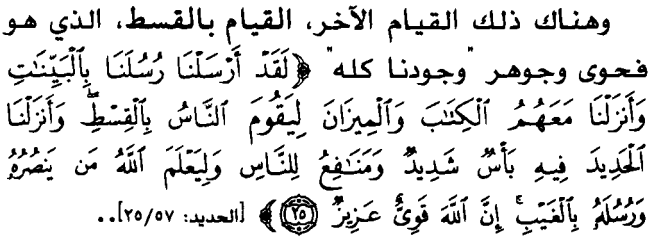 وهناك ذلك القيام الآخر، القيام بالقسط، الذي هو
فحوى وجوهر "وجودنا كله" ﴿لَقَدْ أَرْسَلْنَا رُسُلَنَا بِالْبَيِّنَاتِ
وَأَنزَلْنَا مَعَهُمُ الْكِتَابَ وَالْمِيزَانَ لِيَقُومَ النَّاسُ بِالْقِسْطِ ۖ وَأَنزَلْنَا
الْحَدِيدَ فِيهِ بَأْسٌ شَدِيدٌ وَمَنَافِعُ لِلنَّاسِ وَلِيَعْلَمَ اللَّهُ مَن يَنصُرُهُ
وَرُسُلَهُ بِالْغَيْبِ ۚ إِنَّ اللَّهَ قَوِيٌّ عَزِيزٌ ۝٢٥﴾ [الحديد: ٢٥/٥٧]..